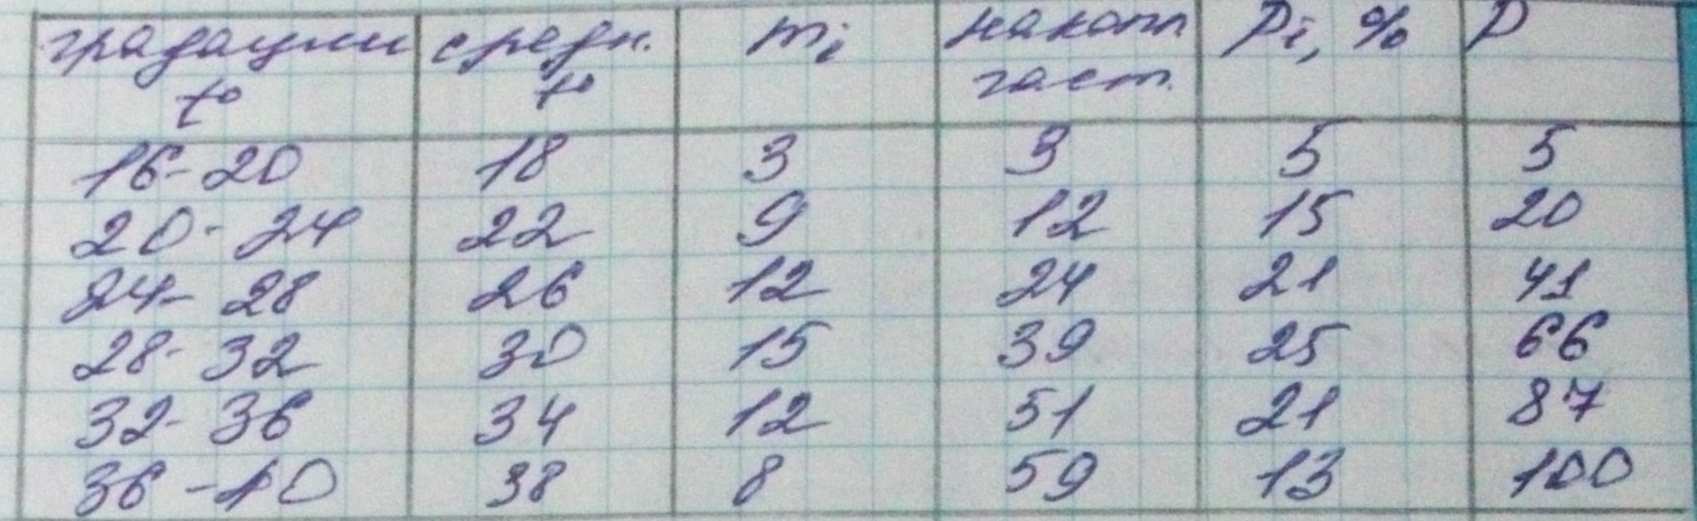 градации средн. mi накопл Pi, % P
t° t° част.
16-20 18 3 3 5 5
20-24 22 9 12 15 20
24-28 26 12 24 21 41
28-32 30 15 39 25 66
32-36 34 12 51 21 87
36-40 38 8 59 13 100